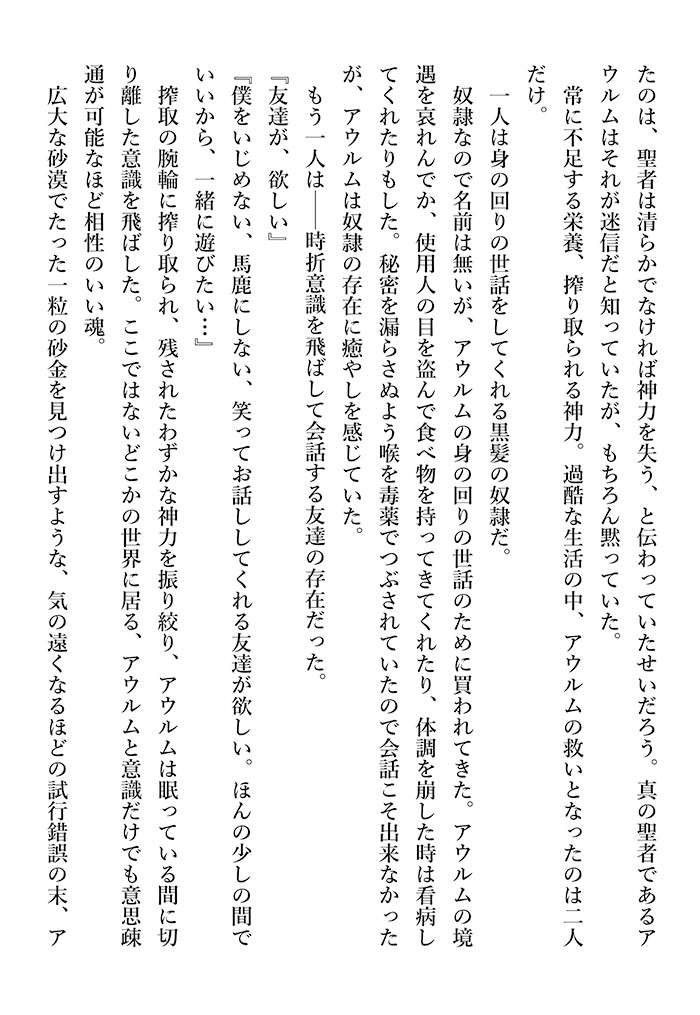 たのは、聖者は清らかでなければ神力を失う、と伝わっていたせいだろう。真の聖者であるア
ウルムはそれが迷信だと知っていたが、もちろん黙っていた。
　常に不足する栄養、搾り取られる神力。過酷な生活の中、アウルムの救いとなったのは二人
だけ。
　一人は身の回りの世話をしてくれる黒髪の奴隷だ。
　奴隷なので名前は無いが、アウルムの身の回りの世話のために買われてきた。アウルムの境
遇を哀れんでか、使用人の目を盗んで食べ物を持ってきてくれたり、体調を崩した時は看病し
てくれたりもした。秘密を漏らさぬよう喉を毒薬でつぶされていたので会話こそ出来なかった
が、アウルムは奴隷の存在に癒やしを感じていた。
　もう一人は――時折意識を飛ばして会話する友達の存在だった。
『友達が、欲しい』
『僕をいじめない、馬鹿にしない、笑ってお話ししてくれる友達が欲しい。ほんの少しの間で
いいから、一緒に遊びたい…』
　搾取の腕輪に搾り取られ、残されたわずかな神力を振り絞り、アウルムは眠っている間に切
り離した意識を飛ばした。ここではないどこかの世界に居る、アウルムと意識だけでも意思疎
通が可能なほど相性のいい魂。
　広大な砂漠でたった一粒の砂金を見つけ出すような、気の遠くなるほどの試行錯誤の末、ア